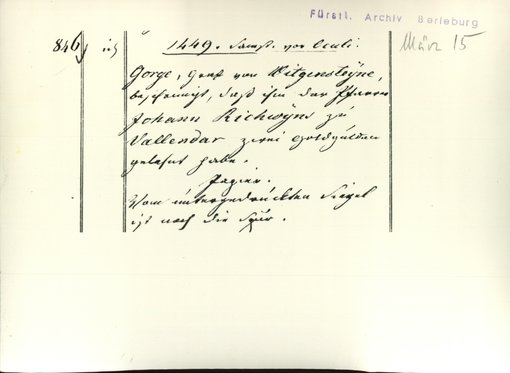 Fürstl. Archiv Berleburg
März 15
846) 1449. Samst. vor Oculi.
Gorge, Graf von Witgensteyne,
bescheinigt, daß ihm der Pfarrer
Johann Richwyns zu
Vallendar zwei Goldgulden
gelehnt habe.
Papier.
Vom untergedruckten Siegel
ist noch die Spur.